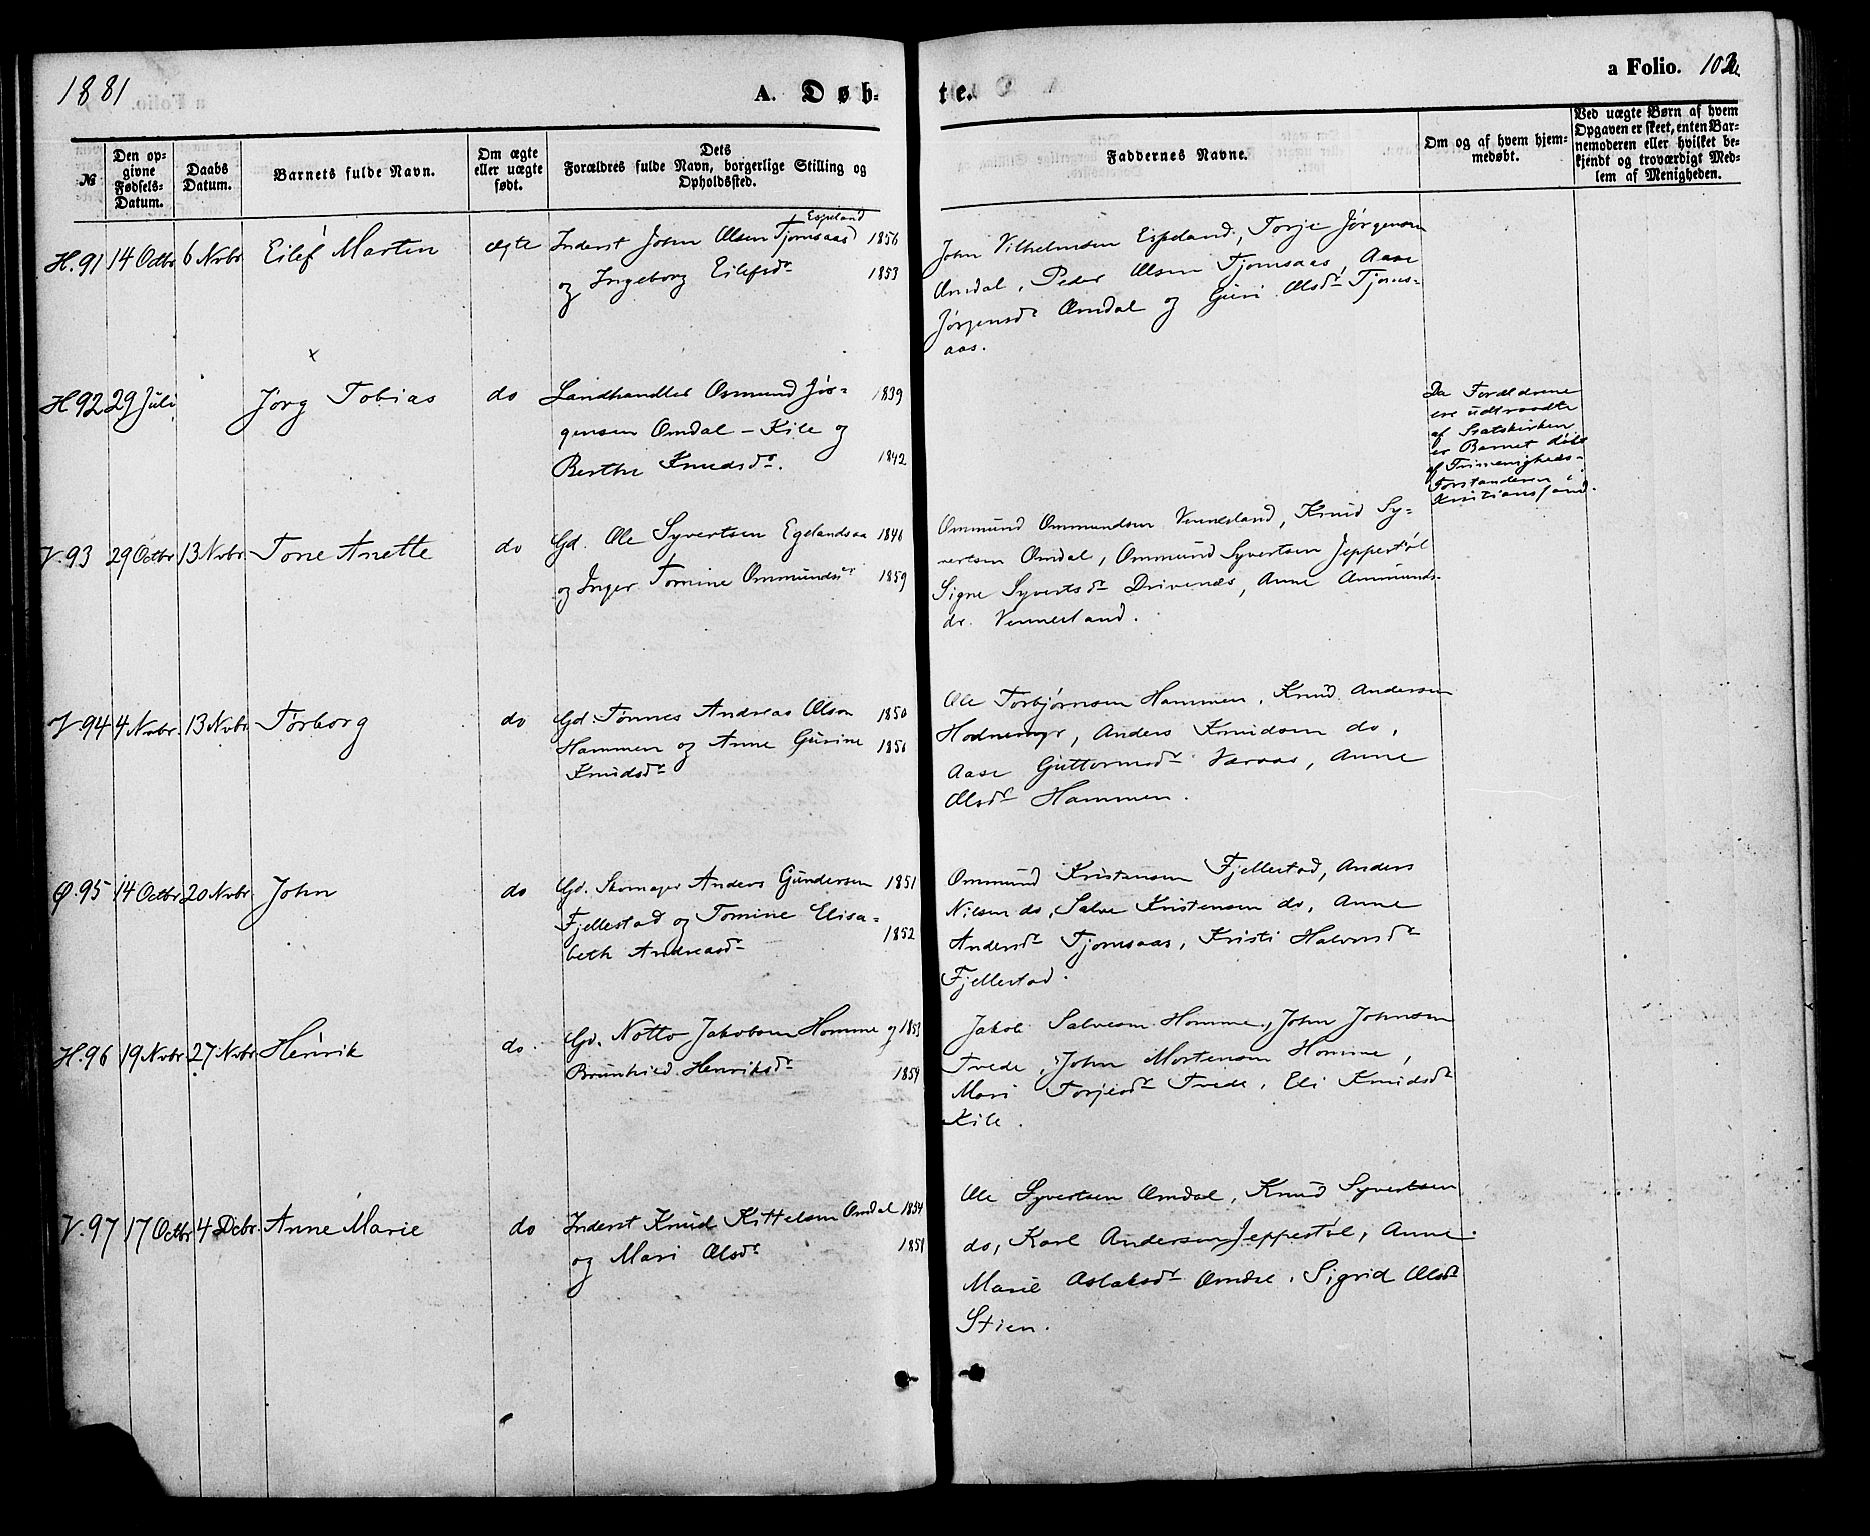 1881
A. Døb-
te.
a Folio. 102
№
Den op-
givne
Fødsels-
Datum.
Daabs
Datum.
Barnets fulde Navn.
Om ægte
eller uægte
født.
Dets
Forældres fulde Navn, borgerlige Stilling og
Opholdssted.
Faddernes Navne.
Om og af hvem hjem-
medøbt.
Ved uægte Børn af hvem
Opgaven er skeet, enten Bar-
nemoderen eller hvilket be-
kjendt og troværdigt Med-
lem af Menigheden.
H. 91 14 Octbr 6 Nvbr Eilef Martin ægte
Espeland
Inderst John Olsen Tjomsaas 1856
og Ingeborg Eilefsdr 1853
John Vilhelmsen Espeland, Torje Jørgensen
Omdal, Peder Olsen Tjomsaas, Aase
Jørgensdr Omdal og Guri Olsdr Tjoms-
aas.
x
H 92 29 Juli Jörg Tobias do
Landhandler Osmund Jør- 1839
gensen Omdal - Kile og
Berthe Knudsdr. 1842
Da Forældrene
ere udtraadte
af Statskirken
er Barnet døbt
af Frimenigheds-
Forstanderen i
Kristianssand.
V. 93 29 Octbr 13 Nvbr Tone Anette do
Gd. Ole Syvertsen Egelandsaa 1846
og Inger Tomine Ommundsdr 1859
Ommund Ommundsen Vennesland, Knud Sy-
vertsen Omdal, Ommund Syvertsen Jeppestøl
Signe Syvertsdr Drivenæs, Anne Ommunds-
dr. Vennesland.
V. 94 4 Nvbr. 13 Nvbr Torborg do
Gd. Tønnes Andreas Olsen 1850
Hammen og Anne Gurine 1856
Knudsdr
Ole Torbjørnsen Hammen, Knud Andersen
Hodnemyr, Anders Knudsen do,
Aase Guttormsdr Væraas, Anne
Olsdr Hammen.
Ø. 95 14 Octbr 20 Nvbr. John do
Gd. Skomager Anders Gundersen 1851
Fjellestad og Tomine Elisa- 1852
beth Andreasdr
Ommund Kristensen Fjellestad, Anders
Nilsen do, Salve Kristensen do, Anne
Andersdr Tjomsaas, Kristi Halvorsdr
Fjellestad.
H. 96 19 Nvbr. 27 Nvbr. Henrik do.
Gd. Notto Jakobsen Homme og 1853
Brunhild Henriksdr 1859
Jakob Salvesen Homme, John Johnsen
Tvede, John Mortensen Homme,
Mari Torjesdr Tvede, Eli Knudsdr
Kile.
V. 97 17 Octbr 4 Dcbr. Anne Marie do
Inderst Knud Kittelsen Omdal 1854
og Mari Olsdr 1851
Ole Syvertsen Omdal, Knud Syvertsen
do, Karl Andersen Jeppestøl, Anne
Marie Aslaksdr Omdal, Sigrid Olsdr
Stien.